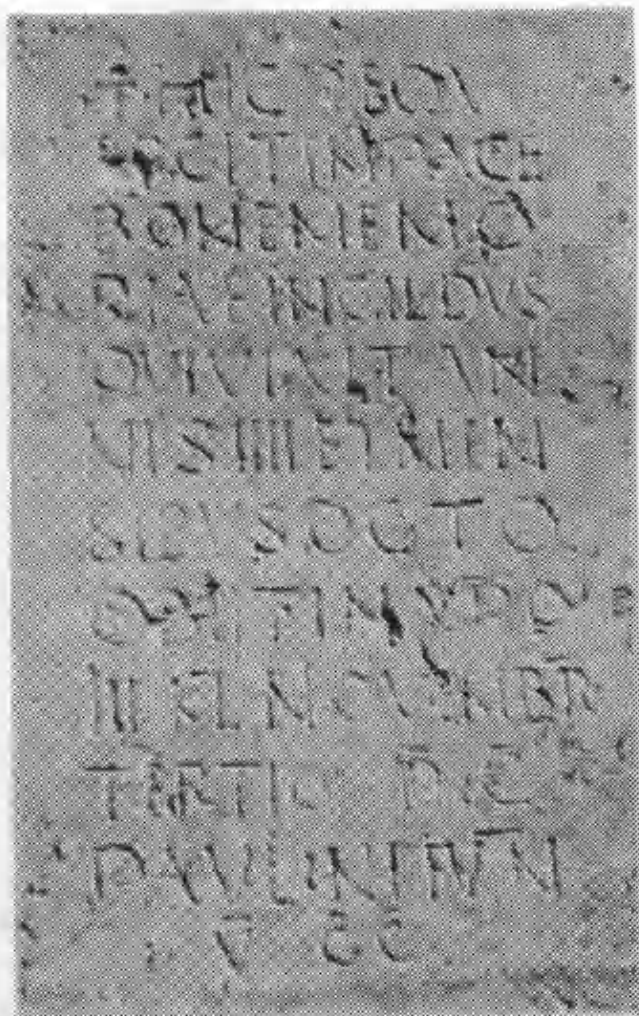 HIC
ESCIT IN PACE
BONEMEMO
QVI VIXIT AN
IIII ET MEN
SIBVS OCTO
OBIIT IN XPO
III KL NOVEMBR
TERTIO PC
PAVLINI IVN
V CC